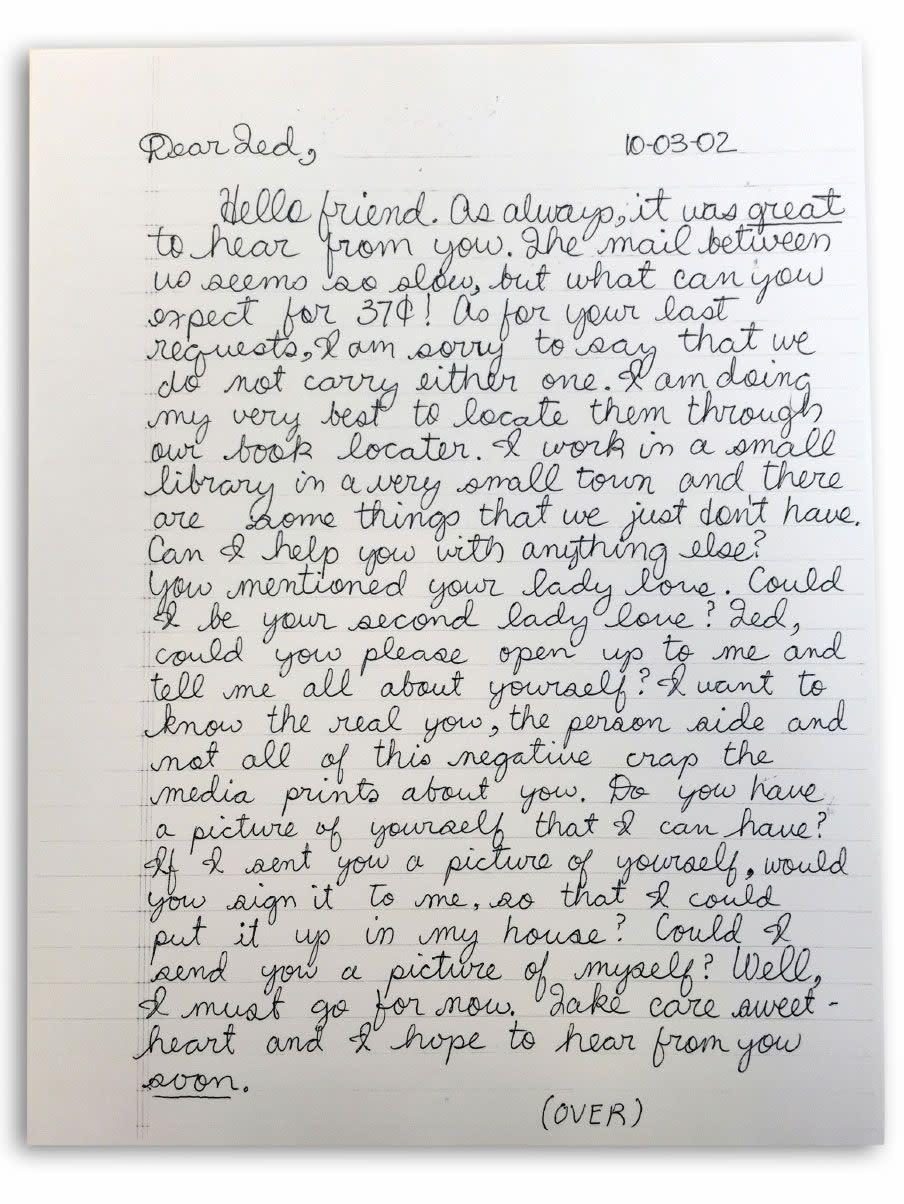 Dear Ted,
10-03-02
Hello friend. As always, it was great
to hear from you. The mail between
us seems so slow, but what can you
expect for 37¢! As for your last
requests, I am sorry to say that we
do not carry either one. I am doing
my very best to locate them through
our book locater. I work in a small
library in a very small town and there
are some things that we just don't have.
Can I help you with anything else?
You mentioned your lady love. Could
I be your second lady love? Ted,
could you please open up to me and
tell me all about yourself? I want to
know the real you, the person side and
not all of this negative crap the
media prints about you. Do you have
a picture of yourself that I can have?
If I sent you a picture of yourself, would
you sign it to me, so that I could
put it up in my house? Could I
send you a picture of myself? Well,
I must go for now. Take care sweet-
heart and I hope to hear from you
soon.
(OVER)